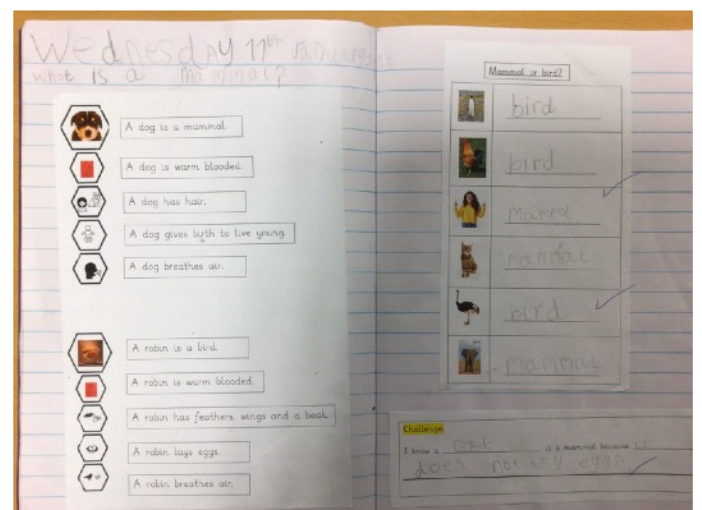 Wednesday 11th January
what is a mammal?
A dog is a mammal.
A dog is warm blooded.
A dog has hair.
A dog gives birth to live young.
A dog breathes air.
A robin is a bird.
A robin is warm blooded.
A robin has feathers, wings and a beak.
A robin lays eggs.
A robin breathes air.
Mammal or bird?
bird
bird
mammal
bird
mammal
Challenge
I know a cat is a mammal because it
does not lay eggs.